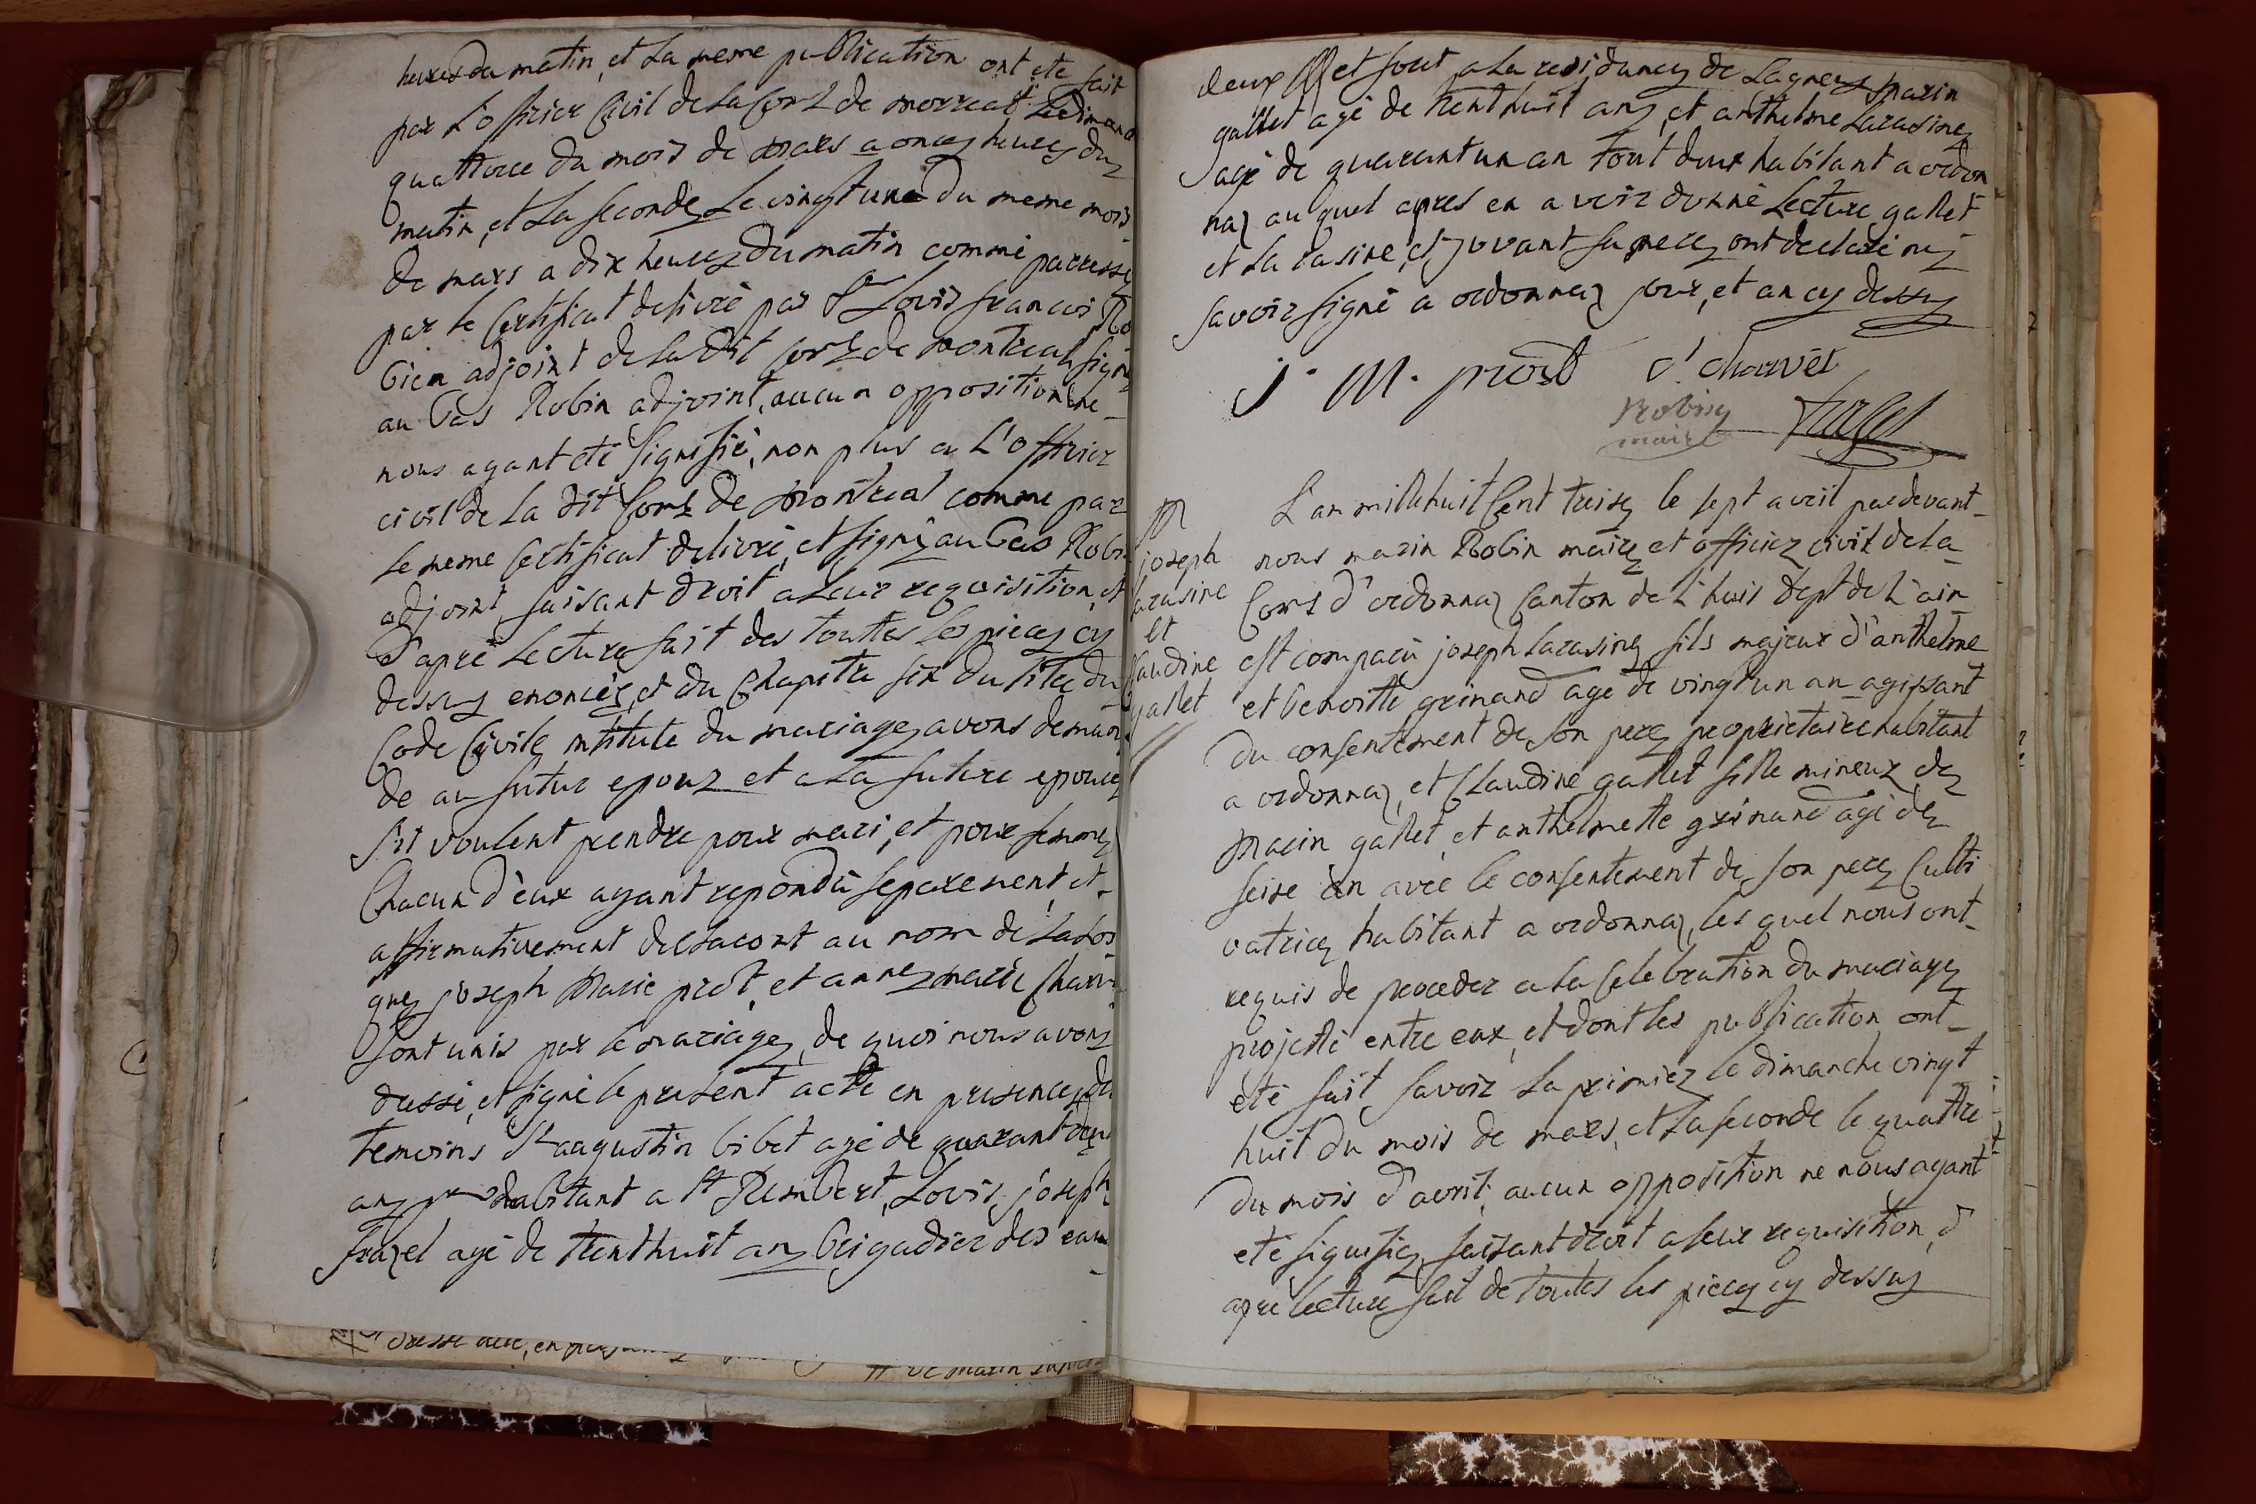 heures du matin, et la meme publication ont ete fait
par L'officier Civil de la Com de morreal Le diman
quattorce du mois de mars a onces heures du
matin, et la seconde Le vingt une du meme mois
de mars a dix heures du matin comme par
par le Certificat delivré par Sr Louis francois Ro
bien adjoint de la dit Com de montreal signé
au bas Robin adjoint, aucun opposition ne
nous ayant eté signifié, non plus a L'officier
civil de la dit Com de montreal comme par
le meme Certificat delivré, et signé au bas Robin
adjoint, faisant droit a leur requisition, et
d'apré lecture fait des touttes les pieces cy
dessus enoncés, et du Chapitre six du titre du
Code Civile intitule du mariage, avons deman
de au futur epoux et a la future epouce
s'il voulent prendre pour mari, et pour femme
Chacun d'eux ayant repondu separement, et
affirmativement declaront au nom de la Loi
que joseph marie prost, et anne marie Charve
sont unis par le mariage, de quoi nous avons
dussé, et signé le present acte en presence du
temoins Sr augustin bibet agé de quarant deux
ans habitant a St Rembert, Louis joseph
frazet agé de trent huit ans brigadier des eaux
dresse acte, en
de marin
deux et sont a la residance de Lagneu marin
gallet agé de trent huit ans, et anthelme Larasine
agé de quarant un an tout deux habitant a ordon
naz au quel apres en avoir donné Lecture gallet
et la rasine, et jovant sa mere, ont declaré ne
savoir signé a ordonnaz jour, et an cy dessus
j. M. prost c! charvet
Robin
maire frazet
joseph
larasine
et
Claudine
gallet
L'an mille huit Cent treise le sept avril pardevant
nous marin Robin maire et officier civil de la
Com d'ordonnaz Canton de L'huis dept de L'ain
est comparu joseph larasine fils majeur d'anthelme
et benoitte grinand agé de vingt un an agissant
du consentement de son pere, proprietaire habitant
a ordonnaz, et Claudine gallet fille mineur de
marin gallet, et anthelmette grinand agé de
seise an avec le consentement de son pere Culti
vatrice habitant a ordonnaz, les quel nous ont
requis de proceder a la Celebration du mariage
projetté entre eux, et dont les publication ont
eté fait savoir la primier le dimanche vingt
huit du mois de mars, et la seconde le quattre
du mois d'avril, aucun opposition ne nous ayant
eté signifié, faisant droit a leur requisition, d
apré lecture fait de toutes les pieces cy dessus